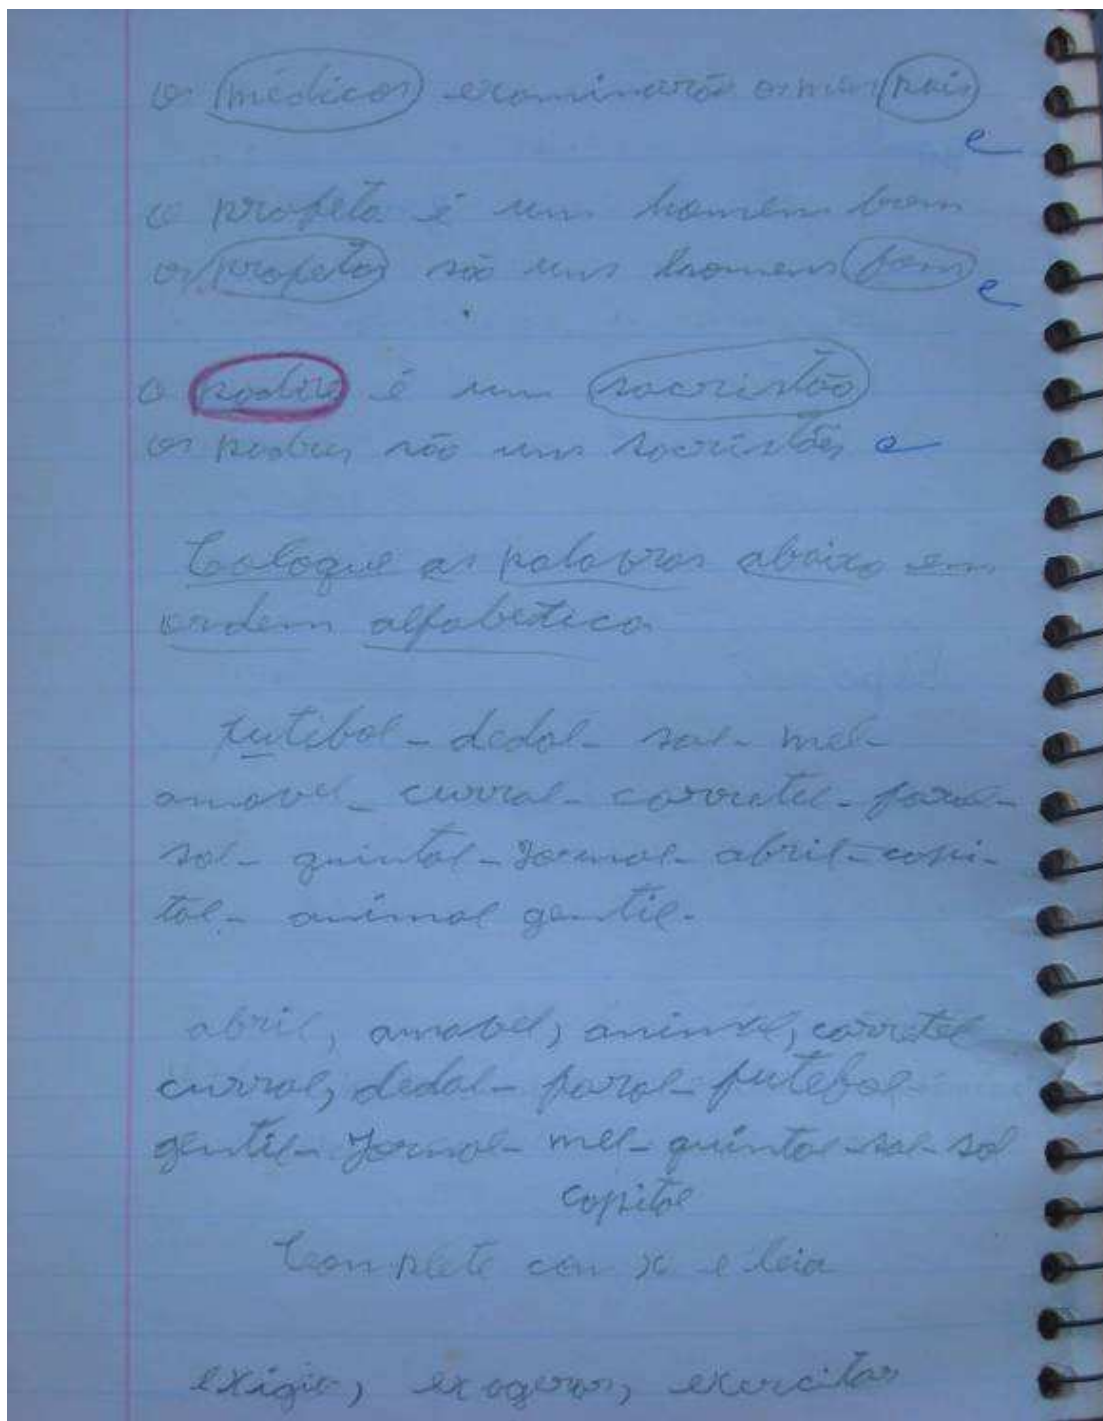 os médicos examinarão os meus pais
e
o profeta é um homem bom
os profetas são uns homens bons
e
o padre é um sacristão
os padres são uns sacristães e
Coloque as palavras abaixo em
ordem alfabetica
futibol - dedal - sal - mel -
amavel - curral - corretel - farol -
sol - quintal - Jornal - abril - capi-
tal - animal gentil -
abril, amavel, animal, carretel
curral, dedal - farol - futebol
gentil - Jornal - mel - quintal - sal - sol
capital
Complete com x e leia
exigir, exagerar, exercitar